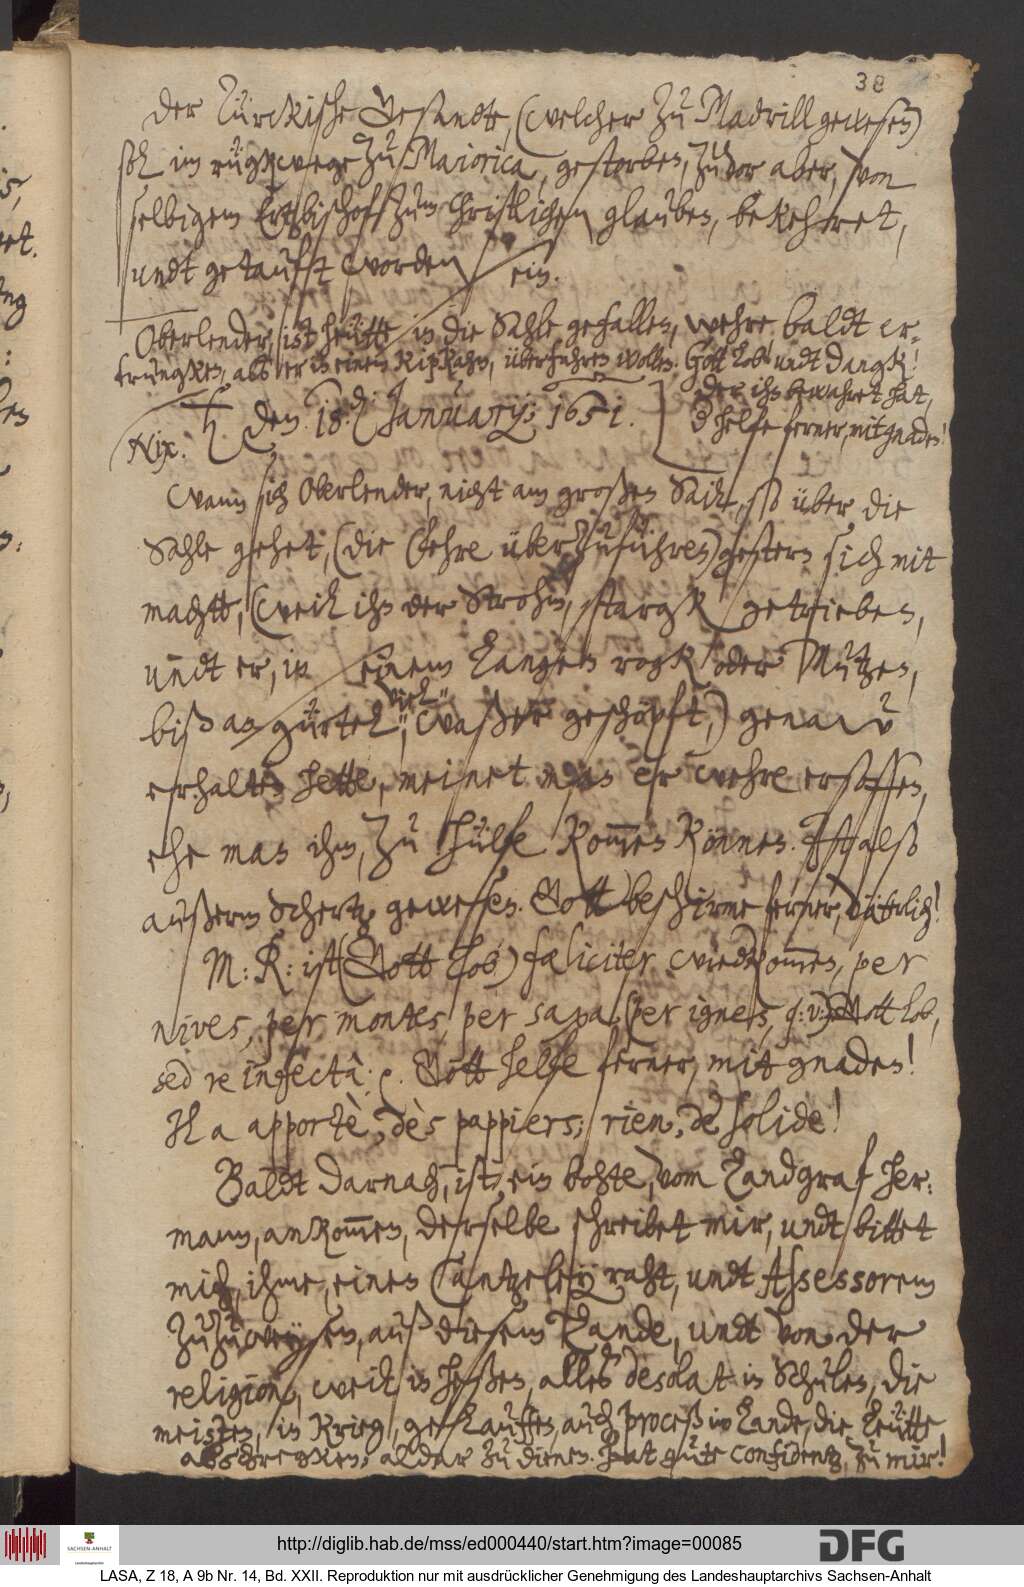 38
Der Türckische Gesandte, (welcher zu Madrill gewesen)
soll im rügkwege zu Maiorica, gestorben, zuvor aber, von
selbigem Ertzbischoff zum Christlichen glauben, bekehret,
undt getaufft worden sein.
Oberlender, ist heütte in die Sahle gefallen, wehre baldt er-
truncken, als er in einem Kipkahn, überfahren wollen. Gott lob undt dangk!
der ihn bewahret hat,
♄ den 18. Januarij: 1651.
Er helfe ferner, mit gnaden!
Nix.
Wann sich Oberlender, nicht am großen Sail, so über die
Sahle gehet, (die Fehre überzuführen) gestern sich mit
machtt, (weil ihn der Strohm, stargk getrieben,
undt er, in einem langen rogk oder Mützen,
biß an gürtel, viel waßer geschöpft,) genaw
erhalten hette, meinet man er wehre ersoffen,
ehe man ihm, zu hülfe kommen können. Ist also
außerm Schertz gewesen. Gott beschirme ferner, väterlich!
M: R: ist (Gott lob) fæliciter wiedkommen, per
nives, per montes, per saxa, (per ignes, q: v:) Gott lob,
sed re infectâ. Gott helfe ferner, mit gnaden!
Il a apportè, dès pappiers; rien, de solide!
Baldt darnach, ist ein bohte, vom Landgraf Her-
mann, ankommen, derselbe schreibet mir, undt bittet
mich, ihme, einen Cantzeleyraht, undt Assessorem
zuzuweysen, auß diesem Lande, undt von der
religion, weil in Heßen, alles desolat in Schulen, die
meisten, in Krieg, gelauffen, auch proceß im Lande, die leütte
abschregken, aldar zu dienen. Hat gute confidentz, zu mir!
http://diglib.hab.de/mss/ed000440/start.htm?image=00085
DFG
SACHSEN-ANHALT
LASA, Z 18, A 9b Nr. 14, Bd. XXII. Reproduktion nur mit ausdrücklicher Genehmigung des Landeshauptarchivs Sachsen-Anhalt